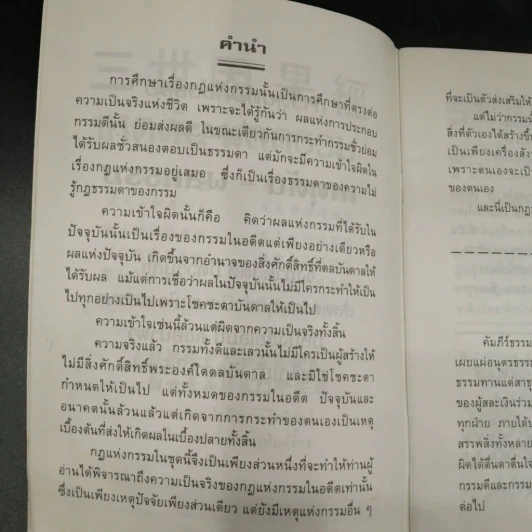 คำนำ
การศึกษาเรื่องกฎแห่งกรรมนั้นเป็นการศึกษาที่ตรงต่อ
ความเป็นจริงแห่งชีวิต เพราะจะได้รู้กันว่า ผลแห่งการประกอบ
กรรมดีนั้น ย่อมส่งผลดี ในขณะเดียวกันการกระทำกรรมชั่วย่อม
ได้รับผลชั่วสนองตอบเป็นธรรมดา แต่มักจะมีความเข้าใจผิดใน
เรื่องกฎแห่งกรรมอยู่เสมอ ซึ่งก็เป็นเรื่องธรรมดาของความไม่
รู้กฎธรรมดาของกรรม
ความเข้าใจผิดนั้นก็คือ คิดว่าผลแห่งกรรมที่ได้รับใน
ปัจจุบันนั้นเป็นเรื่องของกรรมในอดีตแต่เพียงอย่างเดียวหรือ
ผลแห่งปัจจุบัน เกิดขึ้นจากอำนาจของสิ่งศักดิ์สิทธิ์ที่ดลบันดาลให้
ได้รับผล แม้แต่การเชื่อว่าผลในปัจจุบันนั้นไม่มีใครกระทำให้เป็น
ไปทุกอย่างเป็นไปเพราะโชคชะตาบันดาลให้เป็นไป
ความเข้าใจเช่นนี้ล้วนแต่ผิดจากความเป็นจริงทั้งสิ้น
ความจริงแล้ว กรรมทั้งดีและเลวนั้นไม่มีใครเป็นผู้สร้างให้
ไม่มีสิ่งศักดิ์สิทธิ์พระองค์ใดดลบันดาล และมิใช่โชคชะตา
กำหนดให้เป็นไป แต่ทั้งหมดของกรรมในอดีต ปัจจุบันและ
อนาคตนั้นล้วนแล้วแต่เกิดจากการกระทำของตนเองเป็นเหตุ
เบื้องต้นที่ส่งให้เกิดผลในเบื้องปลายทั้งสิ้น
กฎแห่งกรรมในชุดนี้จึงเป็นเพียงส่วนหนึ่งที่จะทำให้ท่านผู้
อ่านได้พิจารณาถึงความเป็นจริงของกฎแห่งกรรมในอดีตเท่านั้น
ซึ่งเป็นเพียงเหตุปัจจัยเพียงส่วนเดียว แต่ยังมีเหตุแห่งกรรมอื่น ๆ
ที่จะเป็นตัวส่งเสริมให้
แต่ไม่ว่ากรรม
สิ่งที่ตัวเองได้สร้าง
เป็นเพียงเครื่อง
เพราะตนเองจะเป็น
ของตนเอง
และนี่เป็นกฎ
คัมภีร์ธรรม
เผยแผ่อนุตรธรรม
ธรรมทานแด่สาธุ
ของผู้สละเงินร่วม
ทุกฝ่าย ภายใต้
สรรพสิ่งทั้งหลาย
ผิดได้ตื่นตาตื่นใจ
กรรมดีและกรรม
ต่อไป